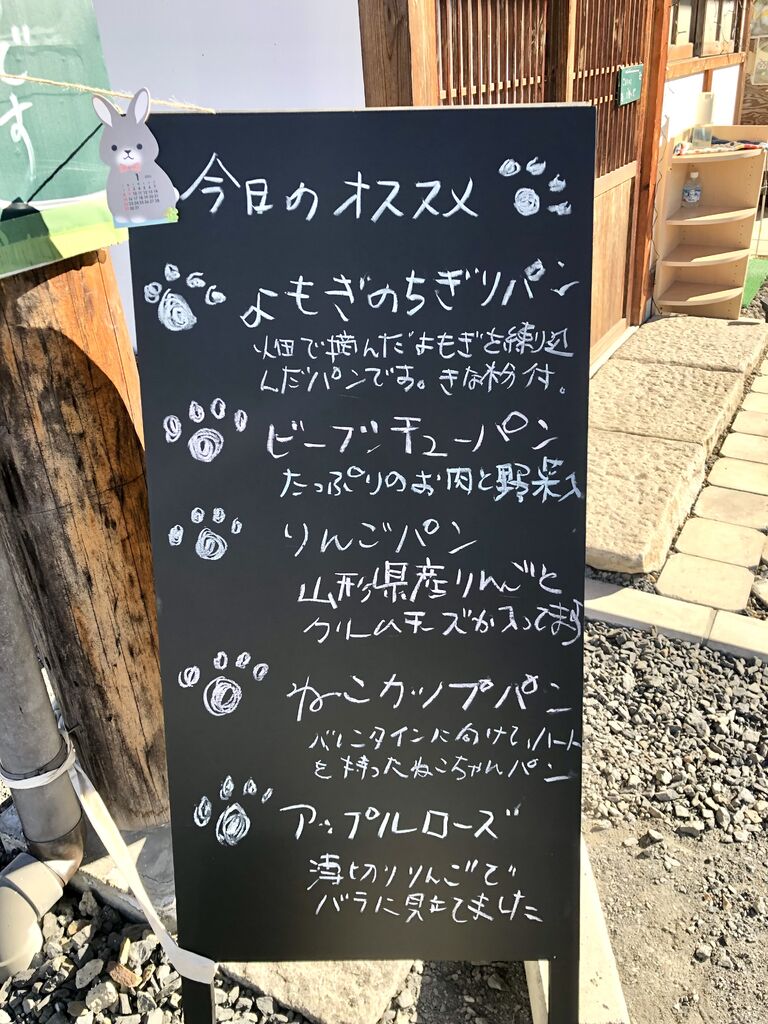 です
今日のオススメ
よもぎのちぎりパン
畑で摘んだよもぎを練り込
んだパンです。きな粉付。
ビーフシチューパン
たっぷりのお肉と野菜入
りんごパン
山形県産りんごと
クリームチーズが入ってます
ねこカップパン
バレンタインに向けて、ハート
を持ったねこちゃんパン
アップルローズ
薄切りりんごで
バラに見立てました